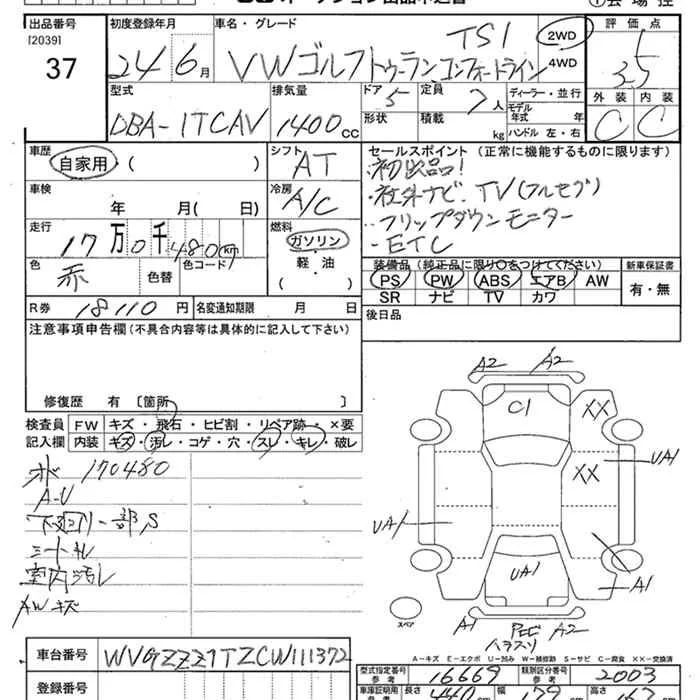 出品番号
[2039]
37
初度登録年月
24年6月
車名・グレード
TSI
VWゴルフトゥーランコンフォートライン
2WD
4WD
評価点
3.5
外装 内装
C C
型式
DBA-1TCAV
排気量
1400cc
ドア 5
形状
定員 7人
積載 kg
ディーラー・並行
モデル年式 年
ハンドル 左・右
車歴
自家用・( )
シフト AT
車検
年 月( 日)
冷房 A/C
走行
17万0千480km
燃料
ガソリン
軽・油
( )
色 赤
色替
色コード( )
R券 18110円
名変通知期限 月 日
セールスポイント (正常に機能するものに限ります)
・初出品!
・社外ナビ、TV(フルセグ)
・フリップダウンモニター
・ETC
装備品 (純正品に限り○をつけてください)
PS PW ABS エアB AW
SR ナビ TV カワ
新車保証書
有・無
後日品
注意事項申告欄(不具合内容等は具体的に記入して下さい)
修復歴 有 [箇所 ]
検査員記入欄
FW キズ・飛石・ヒビ割・リペア跡・×要
内装 キズ・汚レ・コゲ・穴・スレ・キレ・破レ
170480
A-U
下廻り一部S
シートキレ
室内汚レ
AWキズ
A2 A2
C1
XX
XX
UA1
UA1
UA1
A1
A1
A2
スペア
A-キズ E-エクボ U-凹み W-補修跡 S-サビ C-腐食 XX-交換済
車台番号 WVGZZZ1TZCW111372
登録番号
型式指定番号 参考 16669
類別区分番号 参考 2003
車庫証明用 参考
長さ 440cm
幅 179
高さ 167